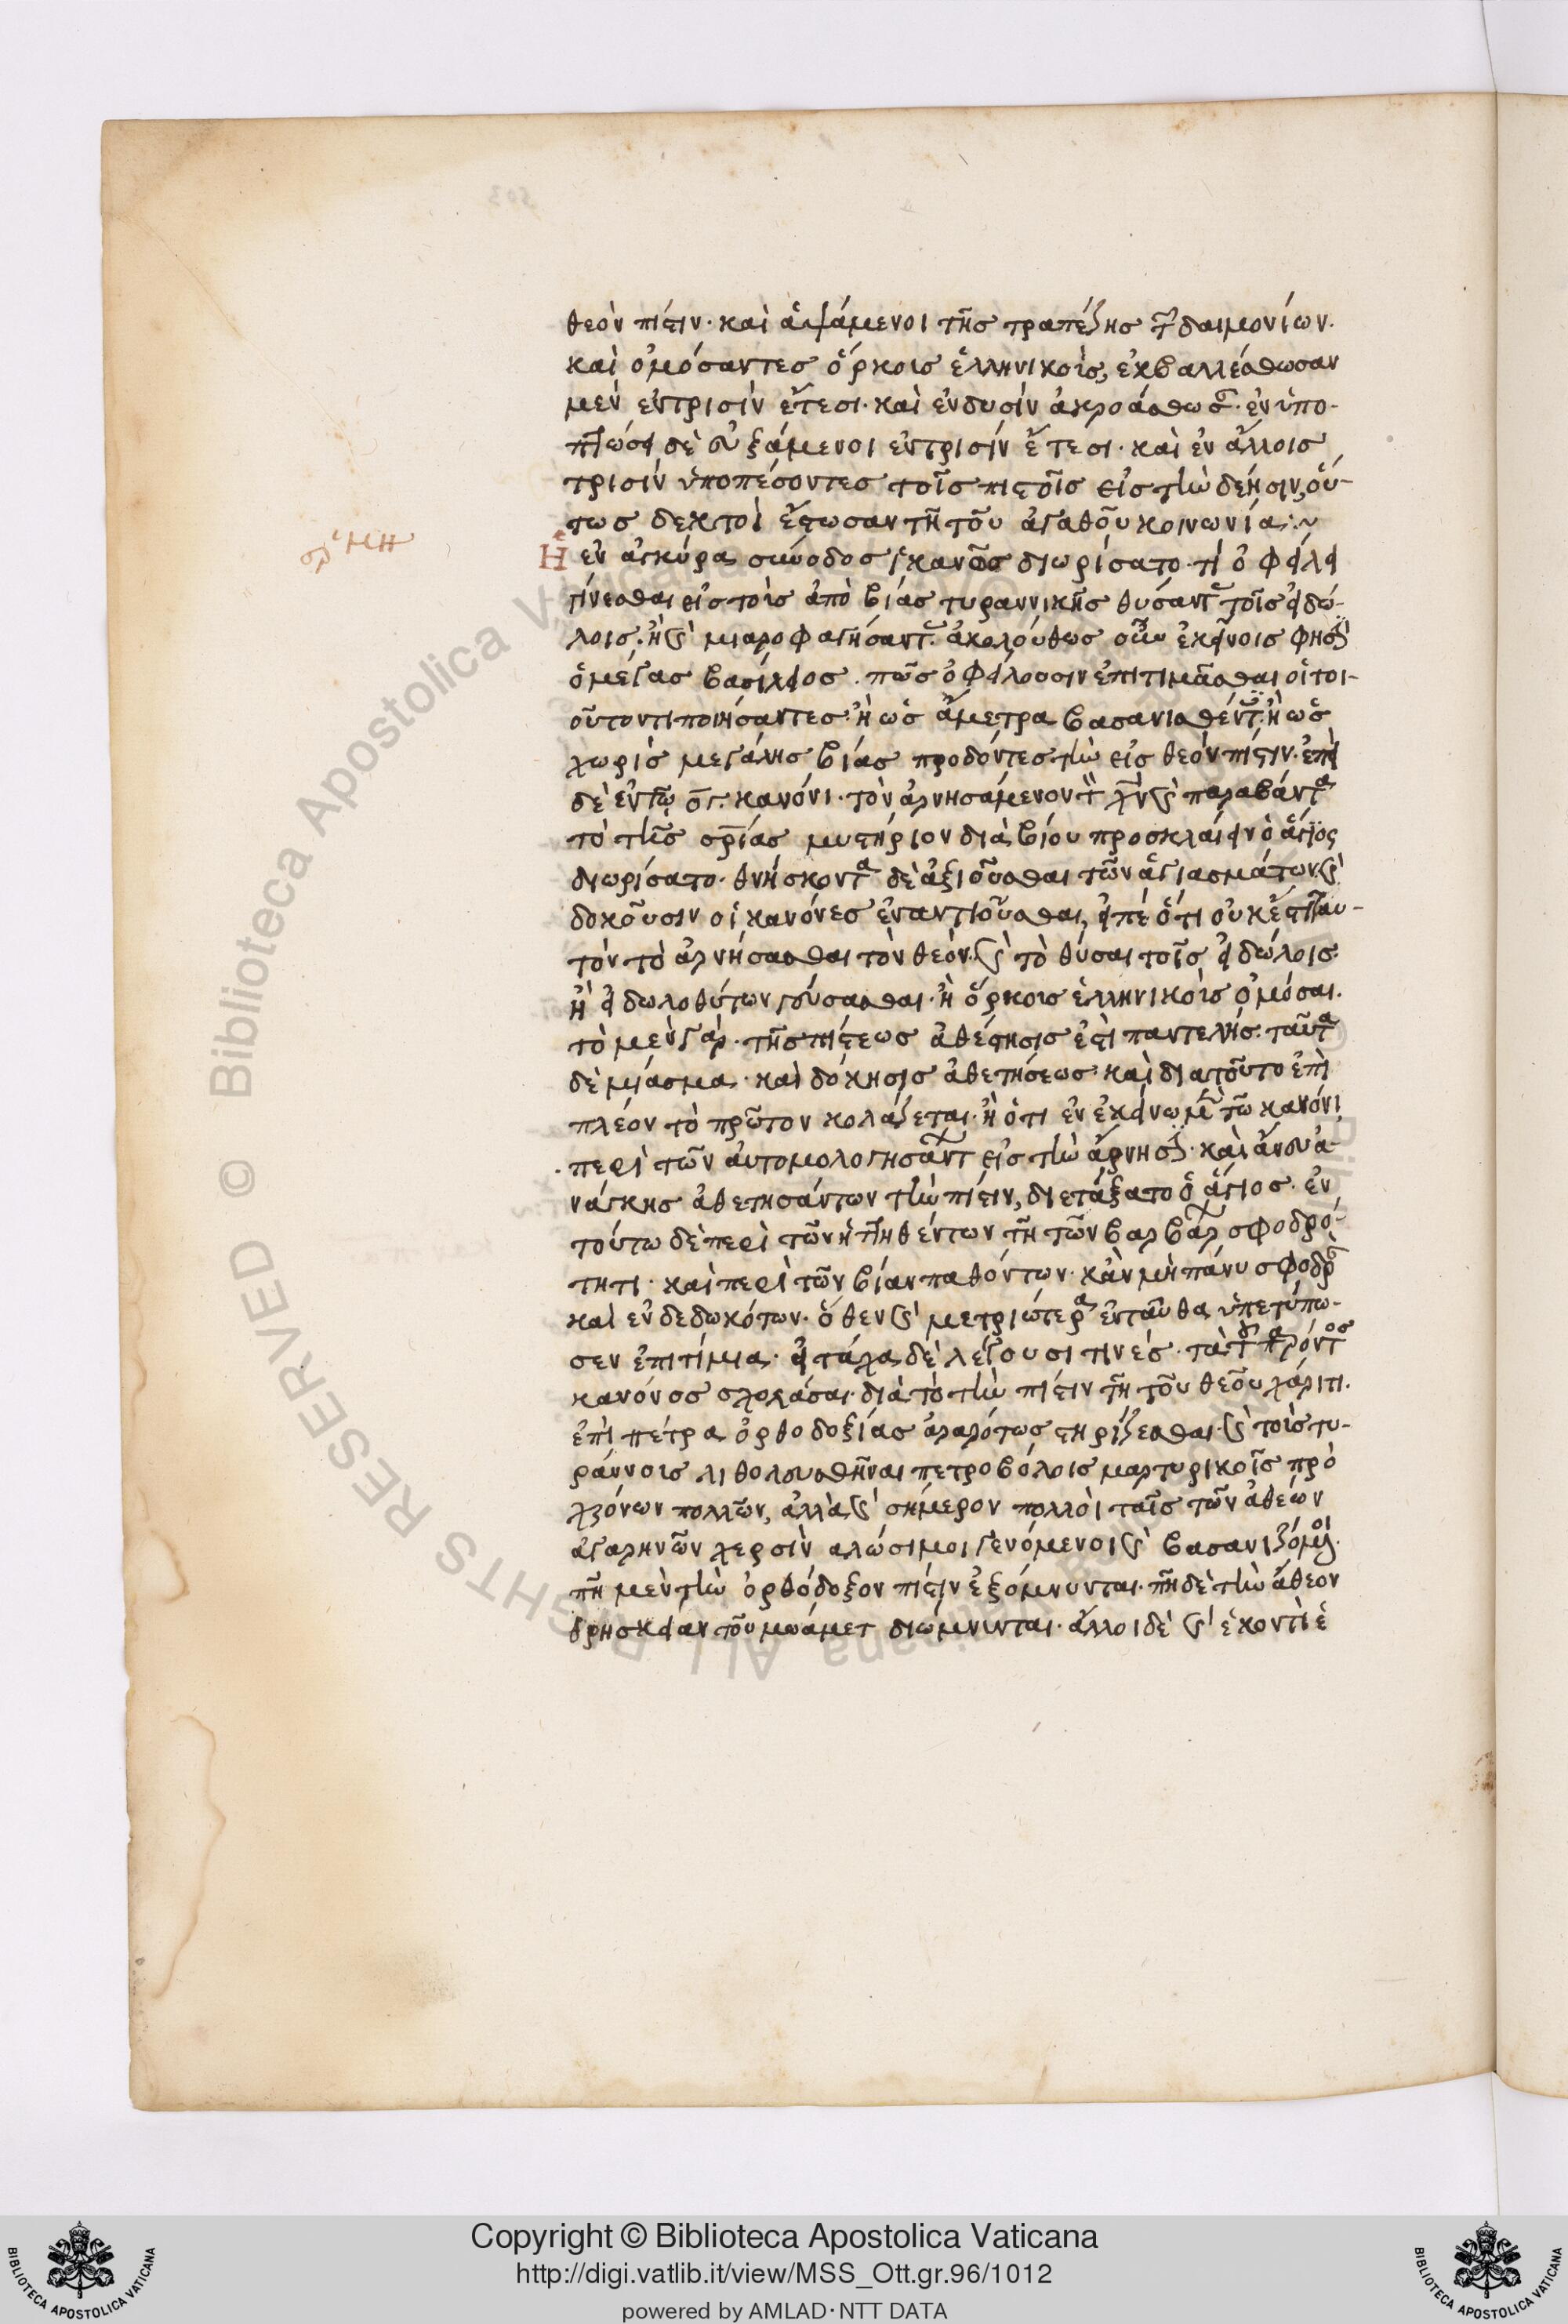 θεὸν πίστιν· καὶ ἁψάμενοι τῆς τραπέζης τ̑ δαιμονίων·
καὶ ὀμόσαντες ὅρκοις ἑλληνικοῖς, ἐκβαλλέσθωσαν
μὲν ἐν τρισὶν ἔτεσι· καὶ ἐν δυσὶν ἀκροάσθωσ· ἐν ὑπο-
πτώσει δὲ εὐξάμενοι ἐν τρισὶν ἔτεσι· καὶ ἐν ἄλλοις
τρισὶν ὑποπέσοντες τοῖς πιστοῖς εἰς τὴν δέησιν, οὕ-
τως δεκτοὶ ἔστωσαν τῆ τοῦ ἀγαθοῦ κοινωνία:~
ἑρμη
Ἡ ἐν ἀγκύρα σύνοδος ἱκανῶς διωρίσατο· τί ὀφείλει
γίνεσθαι εἰς τοὺς ἀπὸ βίας τυραννικῆς θύσαντ τοῖς εἰδώ-
λοις· ἢ ϛ μιαροφαγήσαντ· ἀκολούθως οὖν ἐκείνοις φησὶ
ὁ μέγας βασίλειος· πῶς ὀφείλουσιν ἐπιτιμᾶσθαι οἱ τοι-
οῦτον τι ποιήσαντες· ἢ ὡς ἄμετρα βασανισθέντ· ἢ ὡς
χωρὶς μεγάλης βίας προδόντες τὴν εἰς θεὸν πίστιν· ἐπεὶ
δὲ ἐν τῷ ογ· κανόνι· τὸν ἀρνησάμενον τ χν ϛ παραβάντα
τὸ τῆς σρίας μυστήριον διὰ βίου προσκλαίειν ὁ ἅγιος
διωρίσατο· θνήσκοντα δὲ ἀξιοῦσθαι τῶν ἁγιασμάτων ϛ
δοκοῦσιν οἱ κανόνες ἐναντιοῦσθαι, εἰπὲ ὅτι οὐκ ἔστι ταυ-
τὸν τὸ ἀρνήσασθαι τὸν θεὸν· ϛ τὸ θύσαι τοῖς εἰδώλοις·
ἢ εἰδωλοθύτων γεύσασθαι· ἢ ὅρκοις ἑλληνικοῖς ὀμόσαι·
τὸ μὲν γὰρ· τῆς πίστεως ἀθέτησις ἐστὶ παντελής· ταῦτα
δὲ μίασμα· καὶ δόκησις ἀθετήσεως· καὶ διατοῦτο ἐπὶ
πλέον τὸ πρῶτον κολάζεται· ἢ ὅτι ἐν ἐκείνω μ τῶ κανόνι
περὶ τῶν αὐτομολογησάντ εἰς τὴν ἄρνησ· καὶ ἄνευ ἀ-
νάγκης ἀθετησάντων τὴν πίστιν, διετάξατο ὁ ἅγιος· ἐν
τούτω δὲ περὶ τῶν ἡττηθέντων τῆ τῶν βαρβάρ σφοδρό-
τητι· καὶ περὶ τῶν βίαν παθόντων· κἂν μὴ πάνυ σφοδρ
καὶ ἐνδεδωκότων· ὅθεν ϛ μετριώτερα ἐνταῦθα ὑπετύπω-
σεν ἐπιτίμια· εἰ τάχα δὲ λέγουσι τινές· τὰ τ παρόντος
κανόνος σχολάσαι· διὰ τὸ τὴν πίστιν τῆ τοῦ θεοῦ χάριτι·
ἐπὶ πέτρα ὀρθοδοξίας ἀραρότως στηρίζεσθαι· ϛ τοὺς τυ-
ράννους λιθολευσθῆναι πετροβόλοις μαρτυρικοῖς πρὸ
χρόνων πολλῶν, ἀλλὰ ϛ σήμερον πολλοὶ ταῖς τῶν ἀθέων
ἀγαρηνῶν χερσὶν ἁλώσιμοι γενόμενοι ϛ βασανιζόμοι·
πῆ μὲν τὴν ὀρθόδοξον πίστιν ἐξόμνυνται· πῆ δὲ τὴν ἄθεον
θρησκείαν τοῦ μωάμετ διώμνυνται· ἄλλοι δὲ ϛ ἑκοντὶ ἑ
Copyright © Biblioteca Apostolica Vaticana
http://digi.vatlib.it/view/MSS_Ott.gr.96/1012
powered by AMLAD·NTT DATA